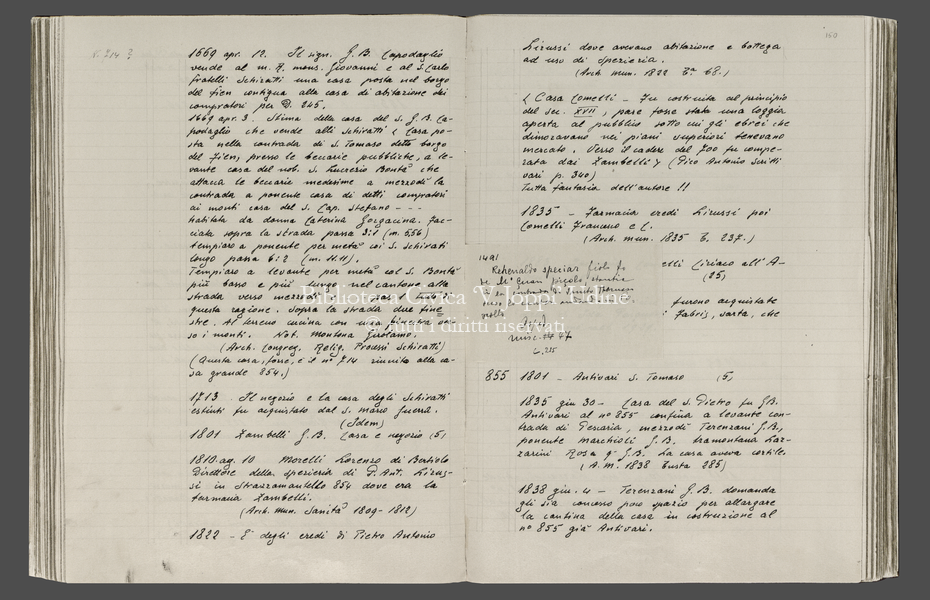 v. 714 ?
1669 apr. 12. Il sign. G.B. Capodaglio
vende al m. R. mons. Giovanni e al S. Carlo
fratelli Schiratti una casa posta nel borgo
del fien contigua alla casa di abitazione dei
compratori per D. 245.
1669 apr. 3. Stima della casa del S. G.B. Ca-
podaglio che vende alli Schiratti < Casa po-
sta nella contrada di S. Tomaso detto borgo
del Fien, presso le becarie pubbliche, a le-
vante casa del nob. S. Lucrezio Bontà che
attacca le becarie medesime a mezzodì la
contrada a ponente casa di detti compratori
ai monti casa del S. Cap. Stefano - - -
habitata da donna Caterina Gorgacina. Fac-
ciata sopra la strada passa 3:1 (m. 5,56)
tempiaro a ponente per metà coi S. Schirati
longo passa 6:2 (m. 11.11).
Tempiaro a levante per metà col S. Bontà
più basso e più lungo nel cantone alla
strada verso
questa ragione. Sopra la strada due fine
stre. Al tereno cucina con una finestra ver-
so i monti. Not. Montona Girolamo.
(Arch. Congreg. Relig. Processi Schiratti)
(Questa casa, forse, è il nº 714 riunita alla ca-
sa grande 854.)
1713. Il negozio e la casa degli Schiratti
estinti fu acquistato dal S. Mario Guerra.
(Idem)
1801 Zambelli G.B. Casa e negozio (5)
1810. ag. 10 Morelli Lorenzo di Bertiolo
Direttore della spezieria di P. Ant. Lirus-
si in Strazzamantello 854 dove era la
farmacia Zambelli.
(Arch. Mun. Sanità 1809-1812)
1822 - È degli eredi di Pietro Antonio
160
Lirussi dove avevano abitazione e bottega
ad uso di spezieria.
(Arch. mun. 1822 68.)
< Casa Cometti - Fu costruita al principio
del sec. XVII, pare fosse stata una loggia
aperta al pubblico sotto cui gli ebrei che
dimoravano nei piani superiori tenevano
mercato. Verso il cadere del 700 fu compe-
rata dai Zambelli > (Pico Antonio Scritti
vari p. 340)
Tutta fantasia dell'autore !!
1835 - Farmacia eredi Lirussi poi
Comelli Franceso e C.
(Arch. mun. 1835 B. 237.)
elli Ciriaco all'A-
(25)
furono acquistate
Fabris, sarta, che
spiciar
855 1801 - Antivari S. Tomaso (5)
1835 giu 30 - Casa del S. Pietro fu G.B.
Antivari al nº 855 confina a levante con-
trada di Pescaria, mezzodì Terenzani G.B.,
ponente Marchioli G.B. tramontana Laz-
zarini Rosa q. G.B. La casa aveva cortile.
(A.M. 1838 Busta 285)
1838 giu. 4 - Terenzani G.B. domanda
gli sia concesso poco spazio per allargare
la cantina della casa in costruzione al
nº 855 già Antivari.
Biblioteca Civica "V. Joppi" Udine
© tutti i diritti riservati